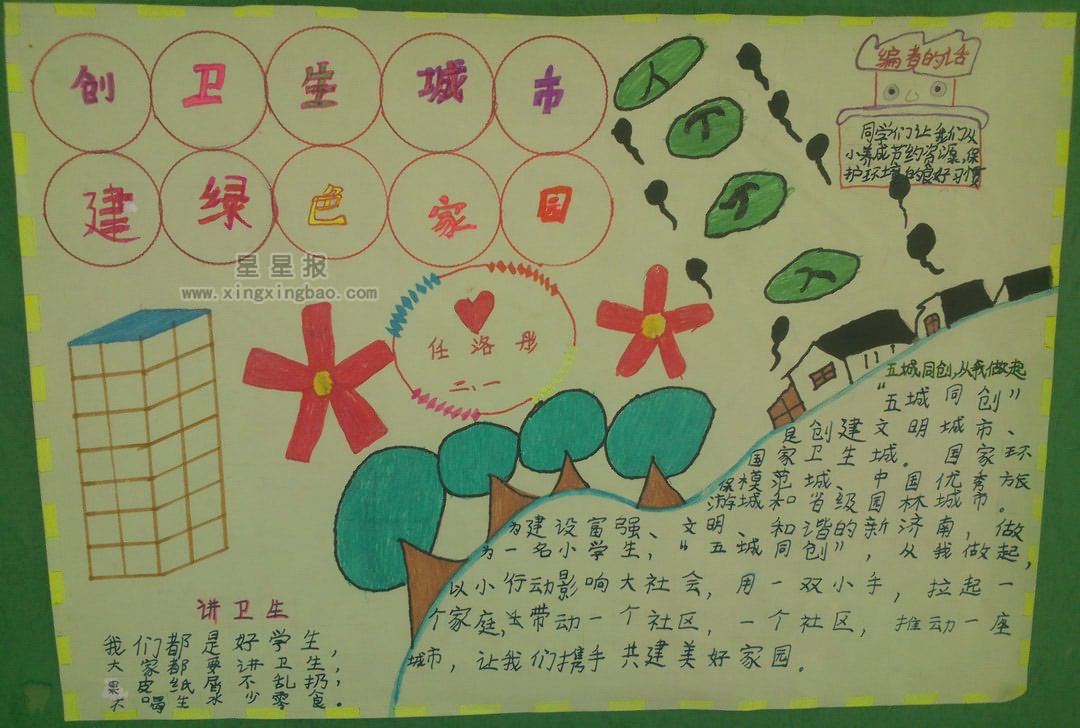 创卫生城市
建绿色家园
星星报
www.xingxingbao.com
任洛彤
二、一
人
个
个
人
编者的话
同学们让我们从
小养成节约资源,保
护环境的良好习惯
五城同创,从我做起
“五城同创”
是创建文明城市、
国家卫生城。国家环
保模范城、中国优秀旅
游城和省级园林城市。
为建设富强、文明、和谐的新济南,做
为一名小学生,“五城同创”,从我做起,
以小行动影响大社会,用一双小手,拉起一
个家庭,带动一个社区,一个社区,推动一座
城市,让我们携手共建美好家园。
讲卫生
我们都是好学生,
大家都要讲卫生;
果皮纸屑不乱扔;
不喝生水少零食。